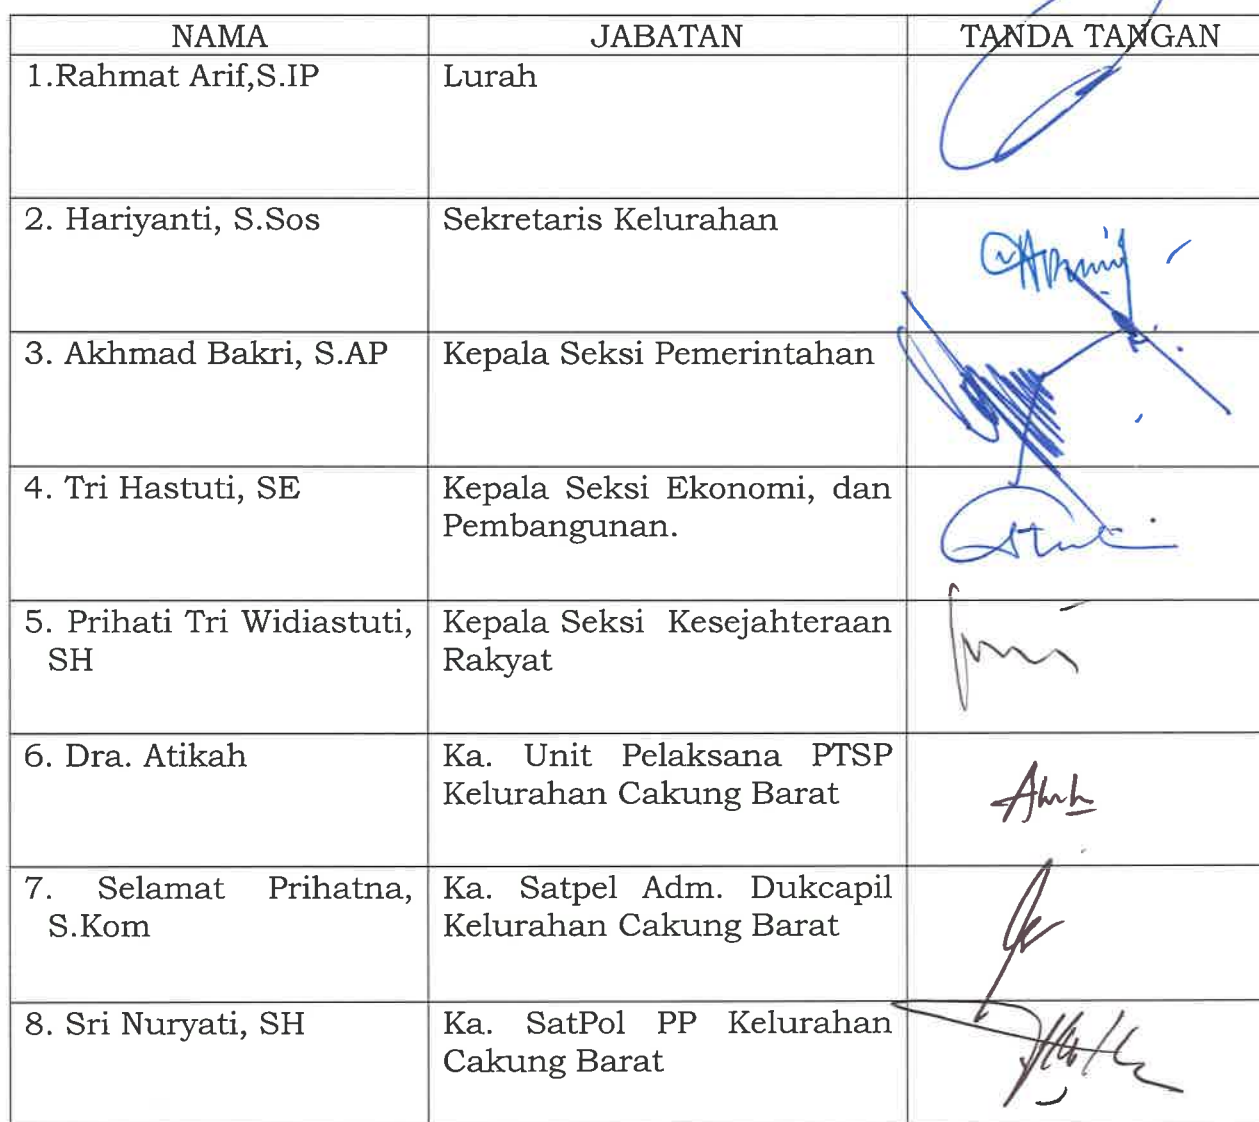 NAMA JABATAN TANDA TANGAN
1.Rahmat Arif,S.IP Lurah
2. Hariyanti, S.Sos Sekretaris Kelurahan
3. Akhmad Bakri, S.AP Kepala Seksi Pemerintahan
4. Tri Hastuti, SE Kepala Seksi Ekonomi, dan
Pembangunan.
5. Prihati Tri Widiastuti, Kepala Seksi Kesejahteraan
SH Rakyat
6. Dra. Atikah Ka. Unit Pelaksana PTSP
Kelurahan Cakung Barat
7. Selamat Prihatna, Ka. Satpel Adm. Dukcapil
S.Kom Kelurahan Cakung Barat
8. Sri Nuryati, SH Ka. SatPol PP Kelurahan
Cakung Barat